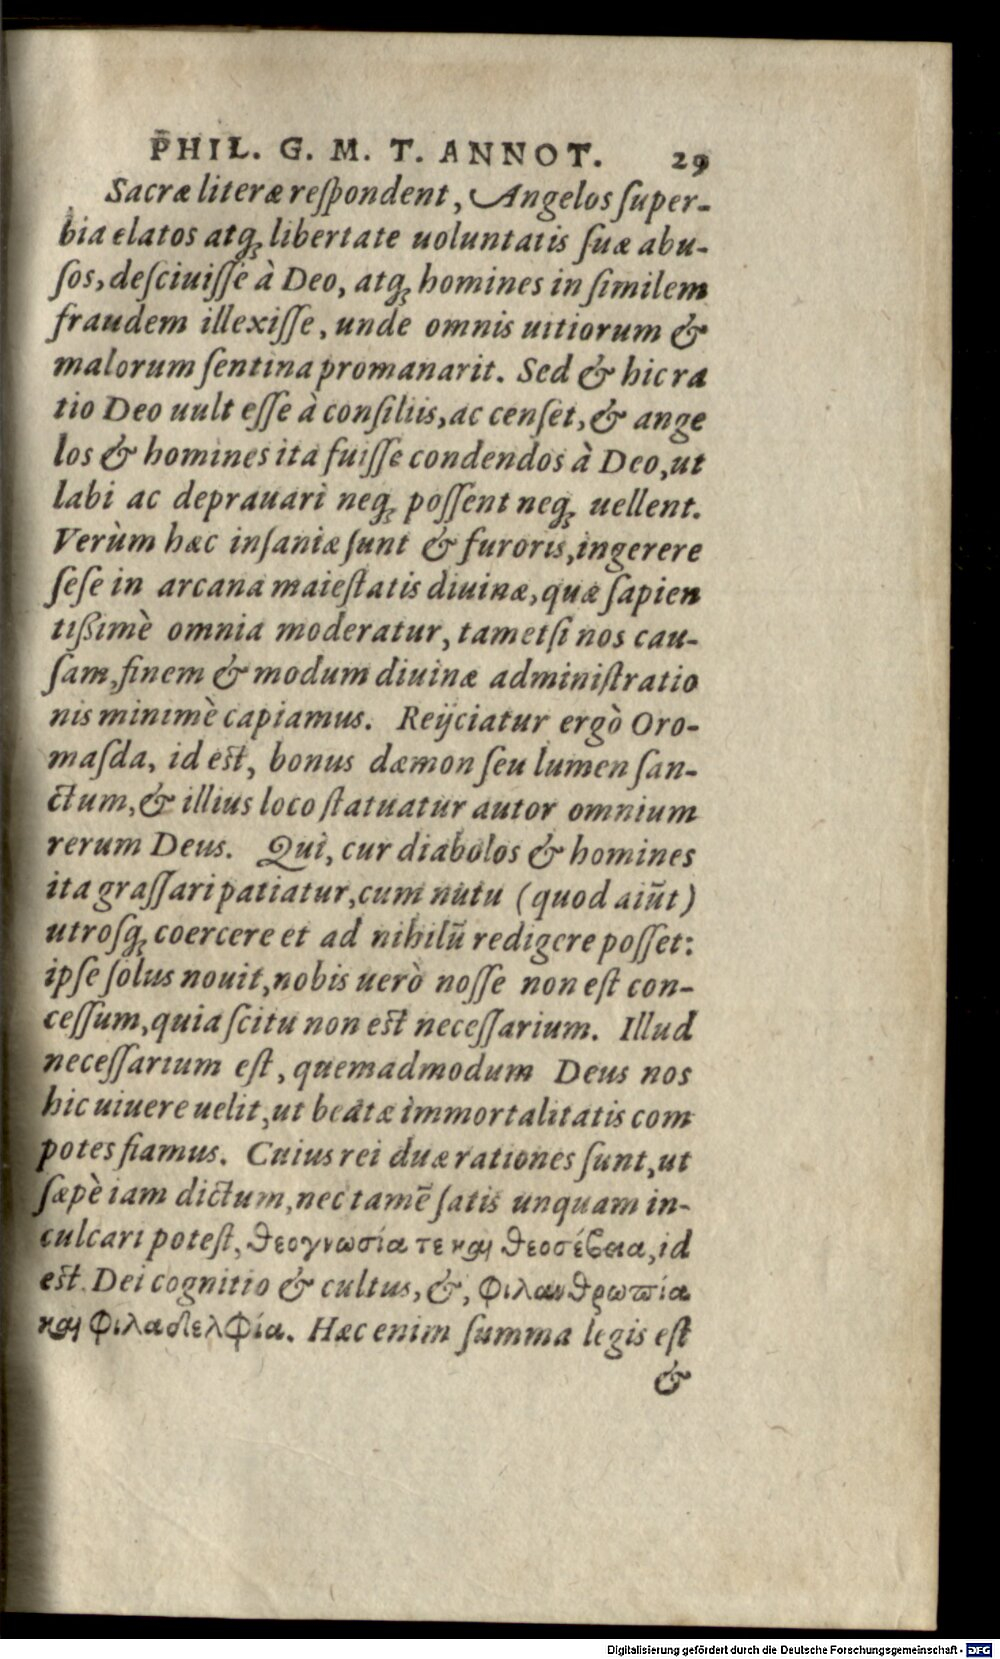 PHIL. G. M. T. ANNOT. 29
Sacræ literæ reſpondent, Angelos ſuper-
bia elatos atq; libertate uoluntatis ſuæ abu-
ſos, deſciuiſſe à Deo, atq; homines in ſimilem
fraudem illexiſſe, unde omnis uitiorum &
malorum ſentina promanarit. Sed & hic ra
tio Deo uult eſſe à conſiliis, ac cenſet, & ange
los & homines ita fuiſſe condendos à Deo, ut
labi ac deprauari neq; poſſent neq; uellent.
Verùm hæc inſaniæ ſunt & furoris, ingerere
ſeſe in arcana maieſtatis diuinæ, quæ ſapien
tißimè omnia moderatur, tametſi nos cau-
ſam, finem & modum diuinæ adminiſtratio
nis minimè capiamus. Reijciatur ergò Oro-
maſda, id eſt, bonus dæmon ſeu lumen ſan-
ctum, & illius loco ſtatuatur autor omnium
rerum Deus. Qui, cur diabolos & homines
ita graſſari patiatur, cum nutu (quod aiūt)
utroſq; coercere et ad nihilū redigere poſſet:
ipſe ſolus nouit, nobis uerò noſſe non eſt con-
ceſſum, quia ſcitu non eſt neceſſarium. Illud
neceſſarium eſt, quemadmodum Deus nos
hic uiuere uelit, ut beatæ immortalitatis com
potes fiamus. Cuius rei duæ rationes ſunt, ut
ſæpè iam dictum, nec tamē ſatis unquam in-
culcari poteſt, θεογνωσία τε καὶ θεοσέβεια, id
eſt. Dei cognitio & cultus, &, φιλανθρωπία
καὶ φιλαδελφία. Hæc enim ſumma legis eſt
&
Digitalisierung gefördert durch die Deutsche Forschungsgemeinschaft - DFG